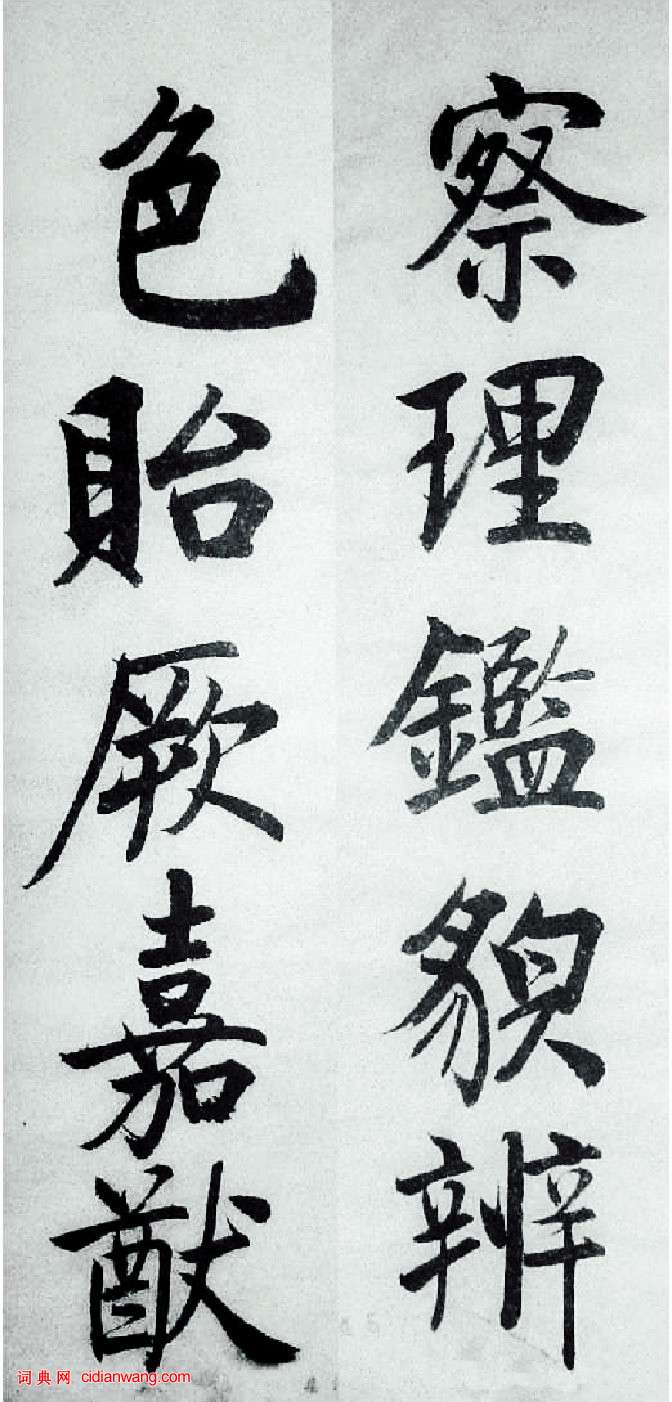 察理鑑貌辨
色貽厥嘉猷
词典网 cidianwang.com